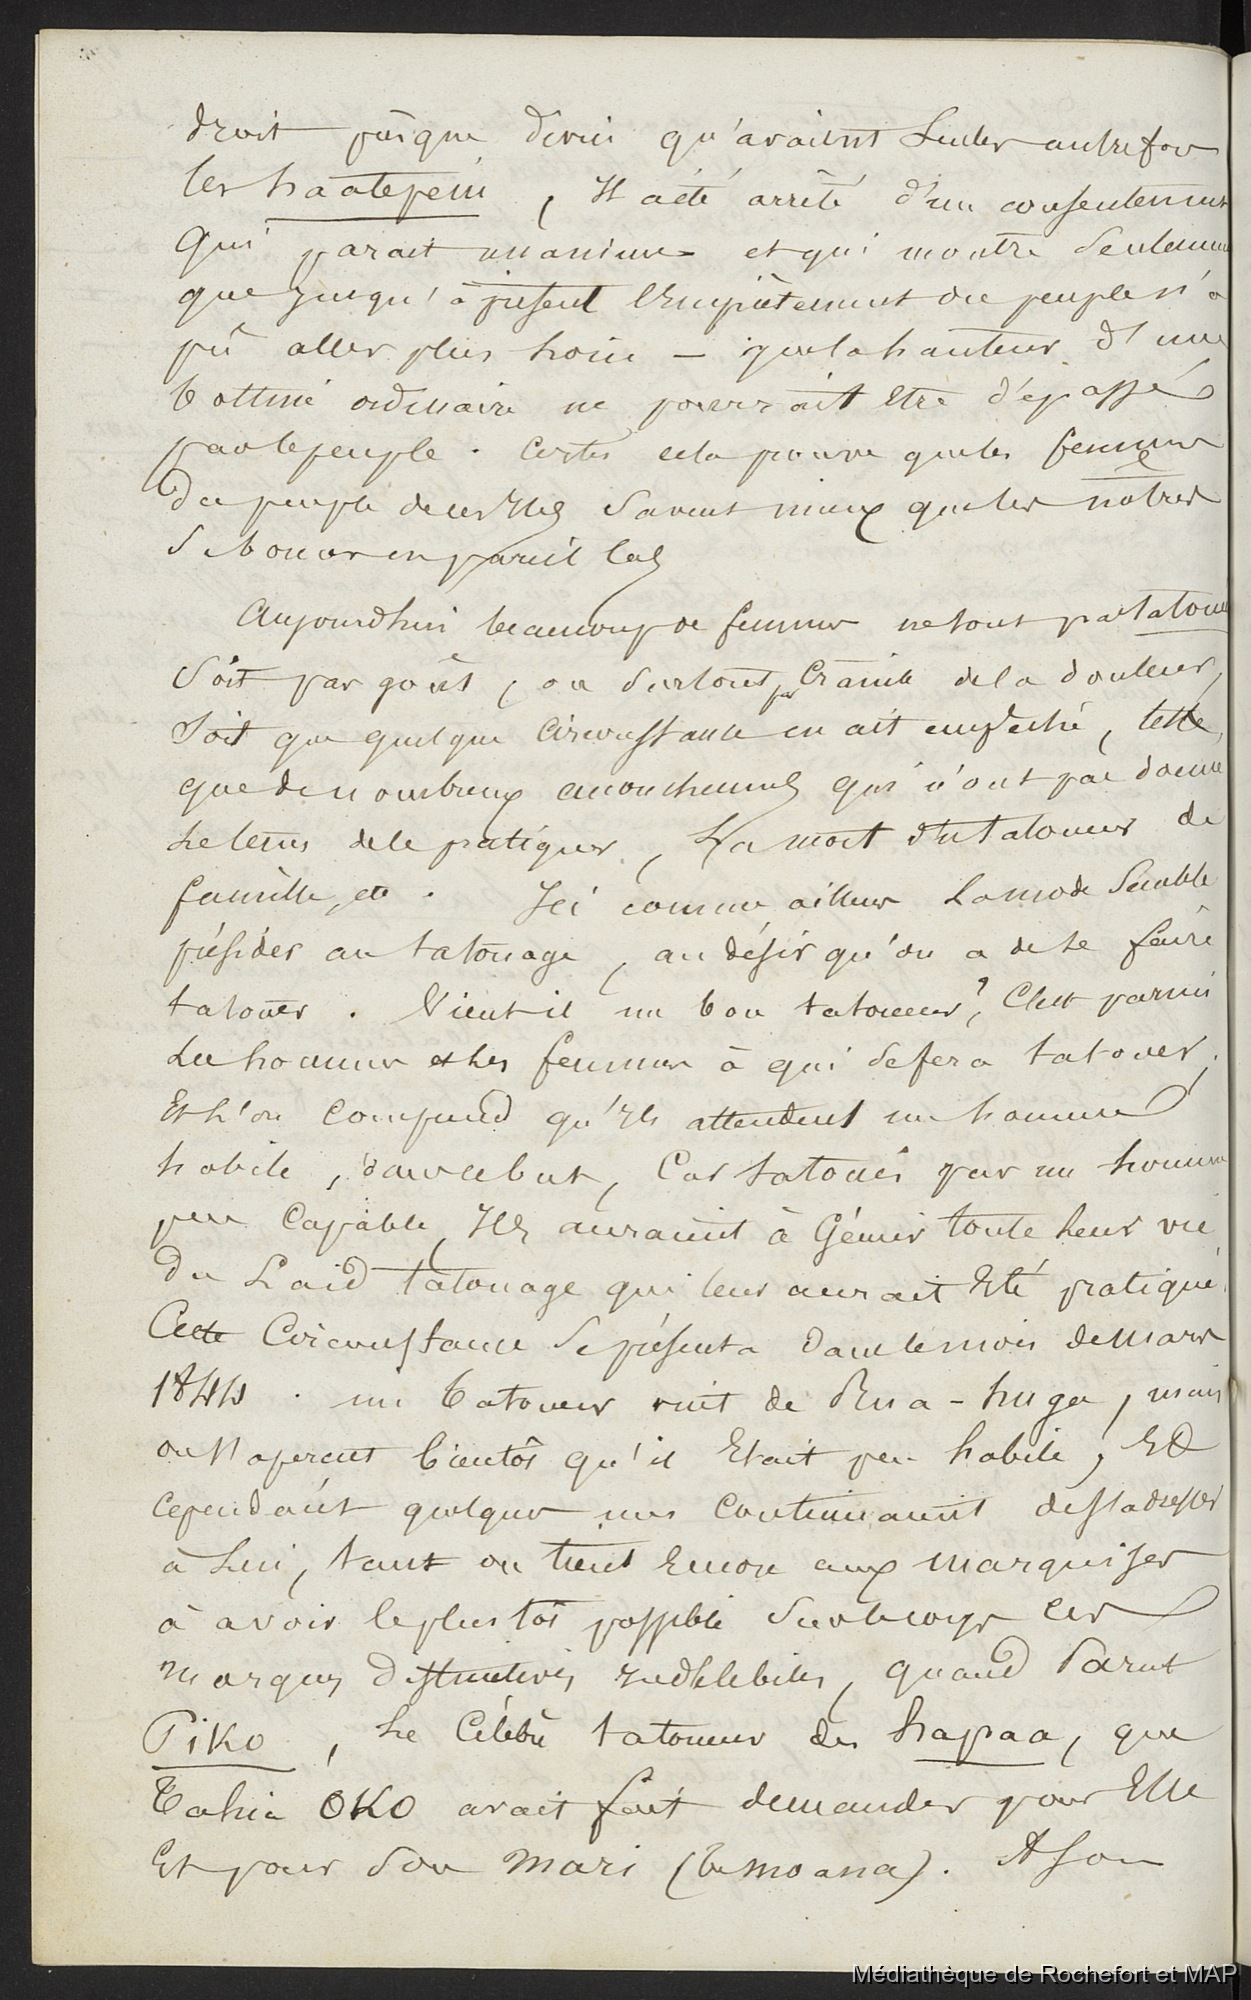 droit presque divin qu'avaient seules autrefois
les haatepeiu, Il a été arrêté d'un consentement
qui parait unanime et qui montre seulement
que jusqu'à présent l'Empiètement du peuple n'a
pû aller plus loin — que la hauteur d'une
bottine ordinaire ne pourrait Etre dépassée
par le peuple. Certes cela prouve que les femmes
du peuple de ces Iles savent mieux que les nôtres
se  en pareil cas
Aujourdhui beaucoup de femmes ne sont pas tatouées
Soit par goût, ou surtout par Crainte de la douleur,
soit que quelque circonstance en ait empêché, telle
que de nombreux accouchemens qui n'ont pas donné
le tems de le pratiquer, La mort d'un tatoueur de
famille, etc. Ici comme ailleurs La mode semble
présider au tatouage, au désir qu'on a de se faire
tatouer. Vient il un bon tatoueur?, C'est parmi
les hommes et les femmes à qui se fera tatouer.
Et l'on comprend qu'Ils attendent un homme
habile, dans ce but, Car tatoués par un homme
peu Capable, Ils auraient à Gémir toute leur vie
du Laid tatouage qui leur aurait Eté pratiqué.
Cette Circonstance se présenta dans le mois de Mars
1844. un tatoueur vint de Rua-huga, mais
on s'aperçut bientôt qu'il Etait peu habile, Et
cependant quelques uns continuaient de s'adresser
à Lui, tant on tient Encore aux Marquises
à avoir le plus tôt possible sur le corps ces
marques distinctives indélébiles, quand Parut
Piko, Le Célèbre tatoueur des hapaa, que
Tahia OKO avait fait demander pour Elle
Et pour Son Mari (te moana). A Son
Médiathèque de Rochefort et MAP